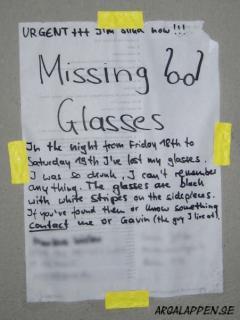 URGENT +++ I'm blind now!!!
Missing
Glasses
In the night from Friday 18th to
Saturday 19th I've lost my glasses.
I was so drunk, I can't remember
anything. The glasses are black
with white stripes on the sidepieces.
If you've found them or know something
contact me or Gavin (the guy I live of).
ARGALAPPEN.SE